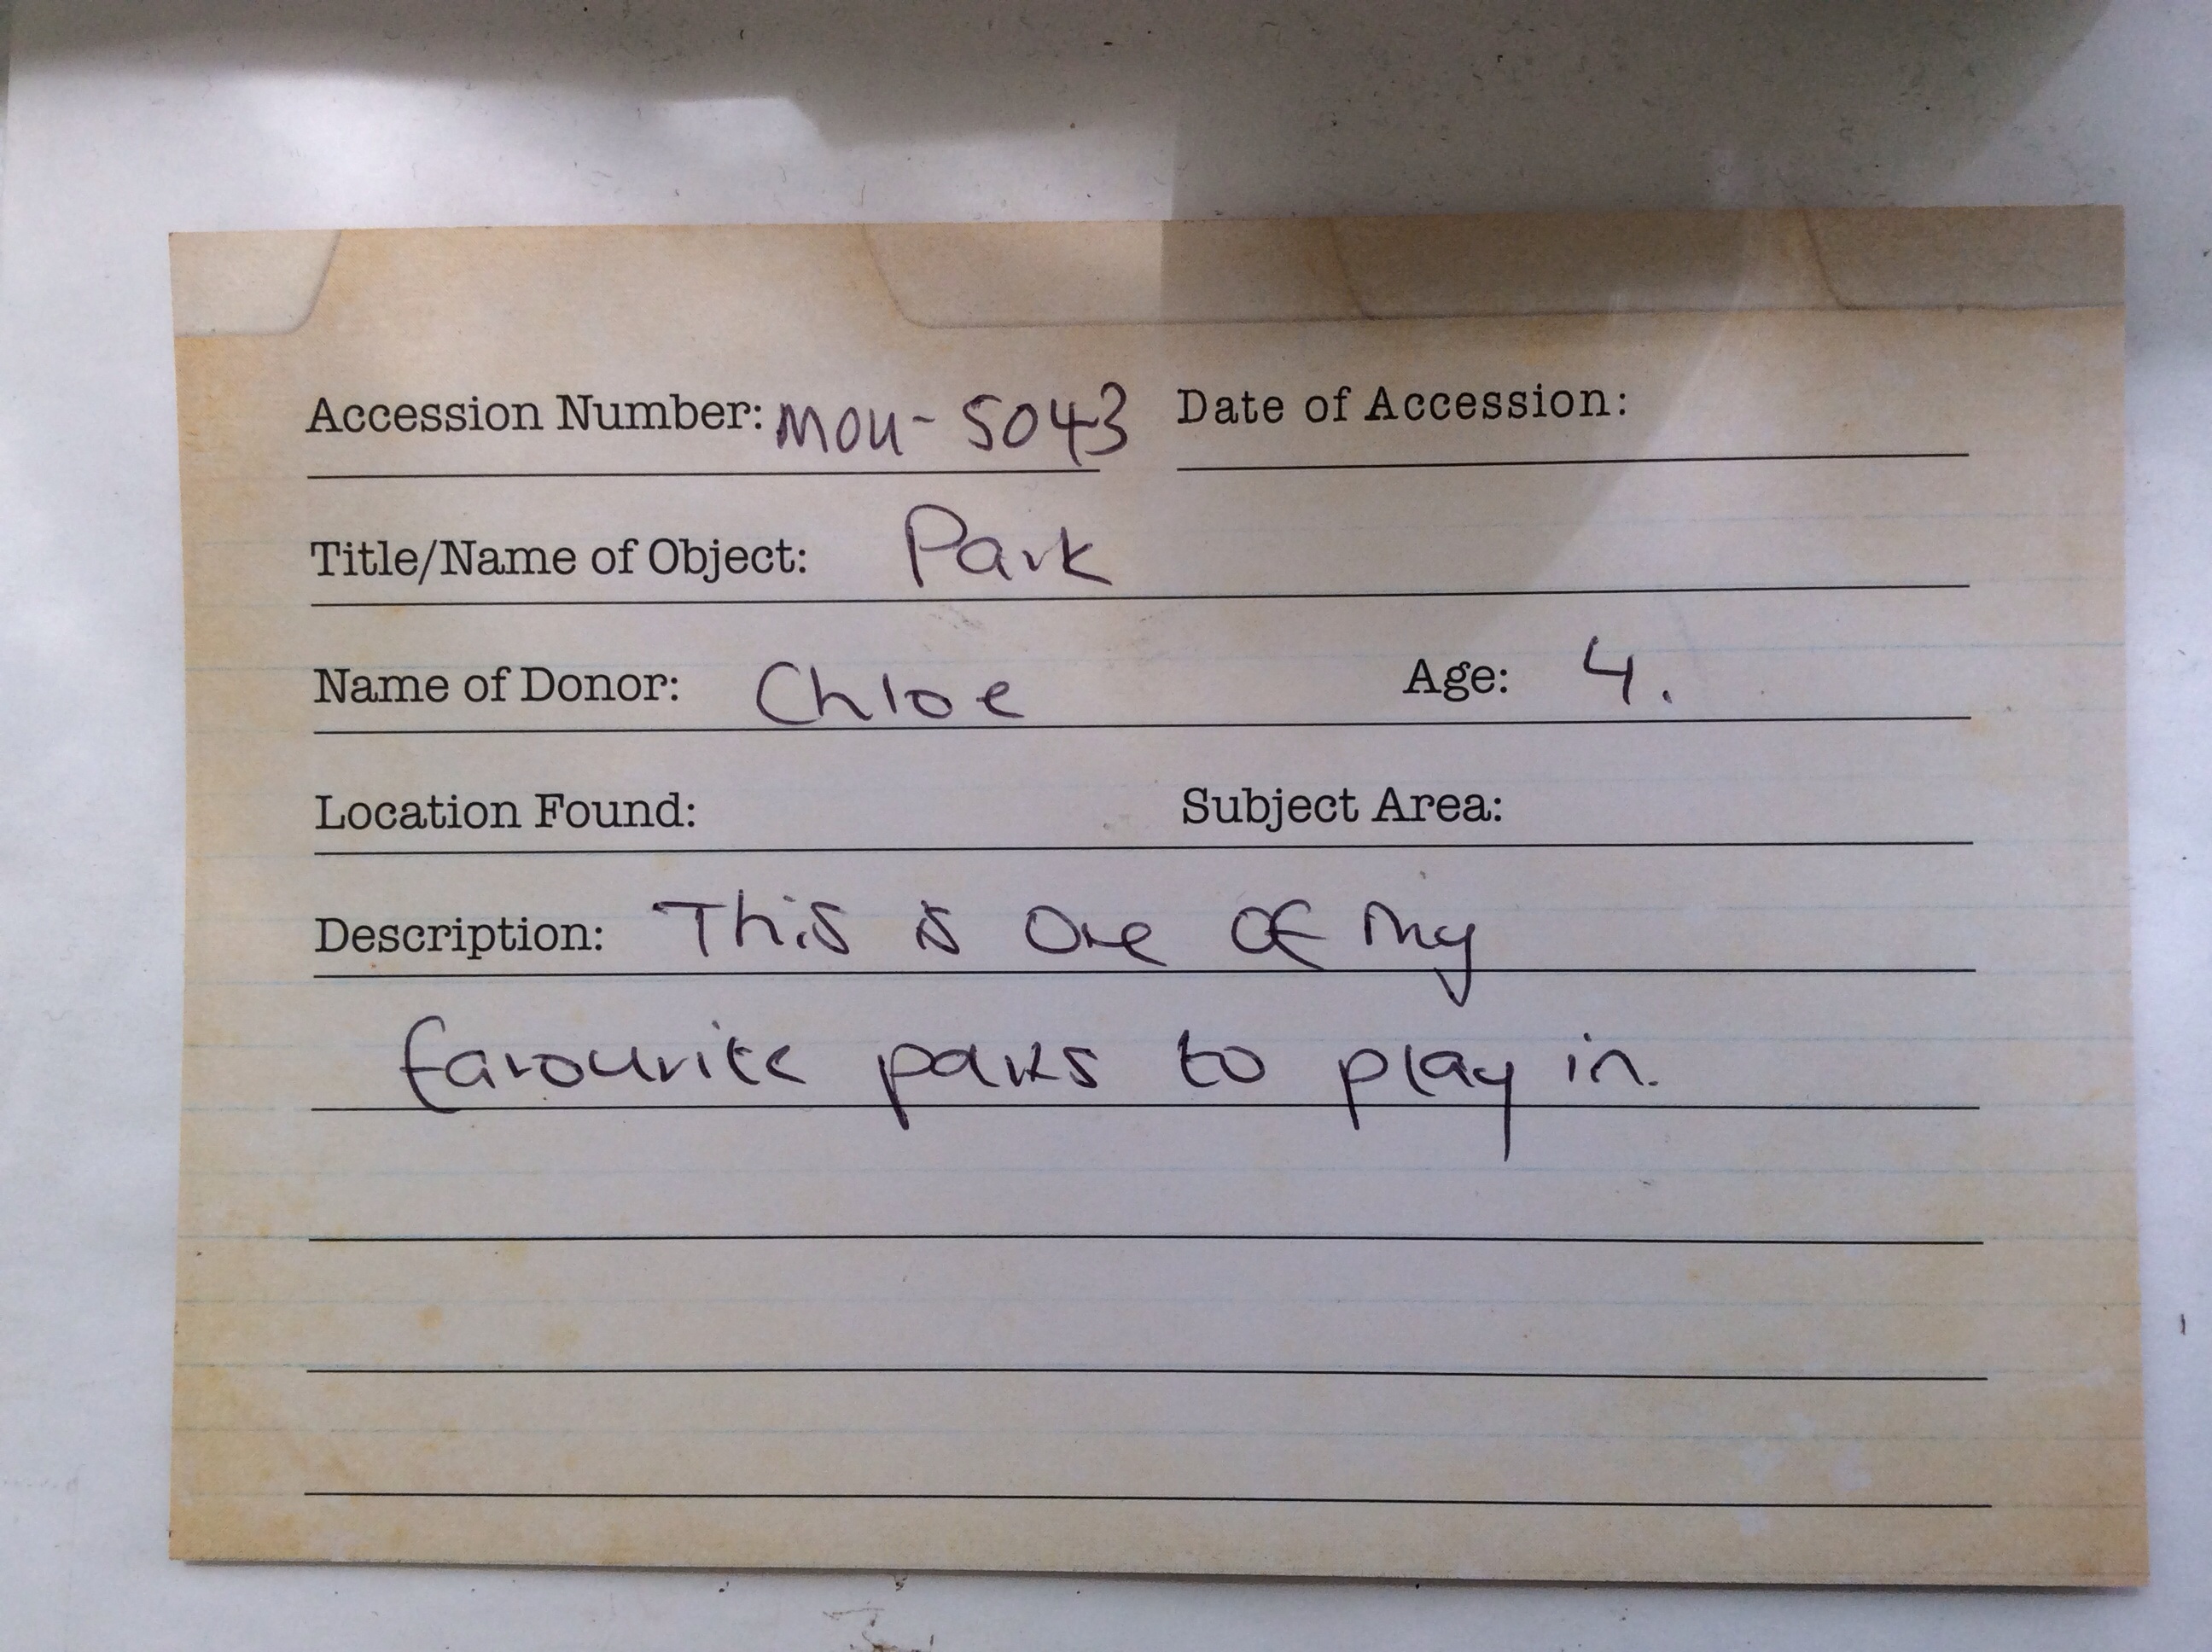 Accession Number: MOU-5043 Date of Accession:
Title/Name of Object: Park
Name of Donor: Chloe Age: 4.
Location Found: Subject Area:
Description: This is one of my
favourite parks to play in.